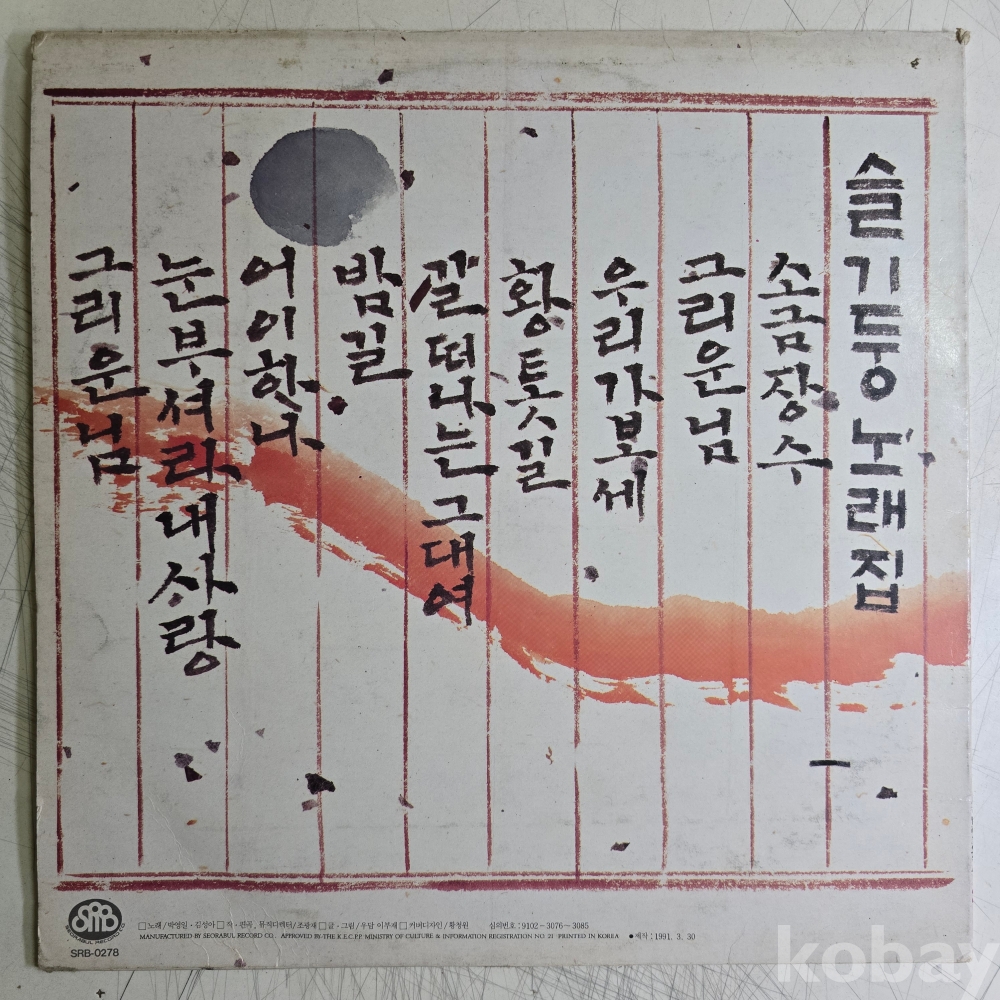 슬기둥 노래집
소금장수
그리운 님
우리가 보세
황톳길
꽃 떠나는 그대여
밤길
어이하나
눈부셔라 내 사랑
그리운 님
SRB
SEORABUL RECORD CO
SRB-0278
□노래/박영일·김성아□작·편곡, 뮤직디렉터/조광재□글·그림/우담 이부재□커버디자인/황정원 심의번호: 9102-3076~3085
MANUFACTURED BY SEORABUL RECORD CO. APPROVED BY THE K.E.C.P.P MINISTRY OF CULTURE & INFORMATION REGISTRATION NO. 21 PRINTED IN KOREA ●제작: 1991. 3. 30
kobay